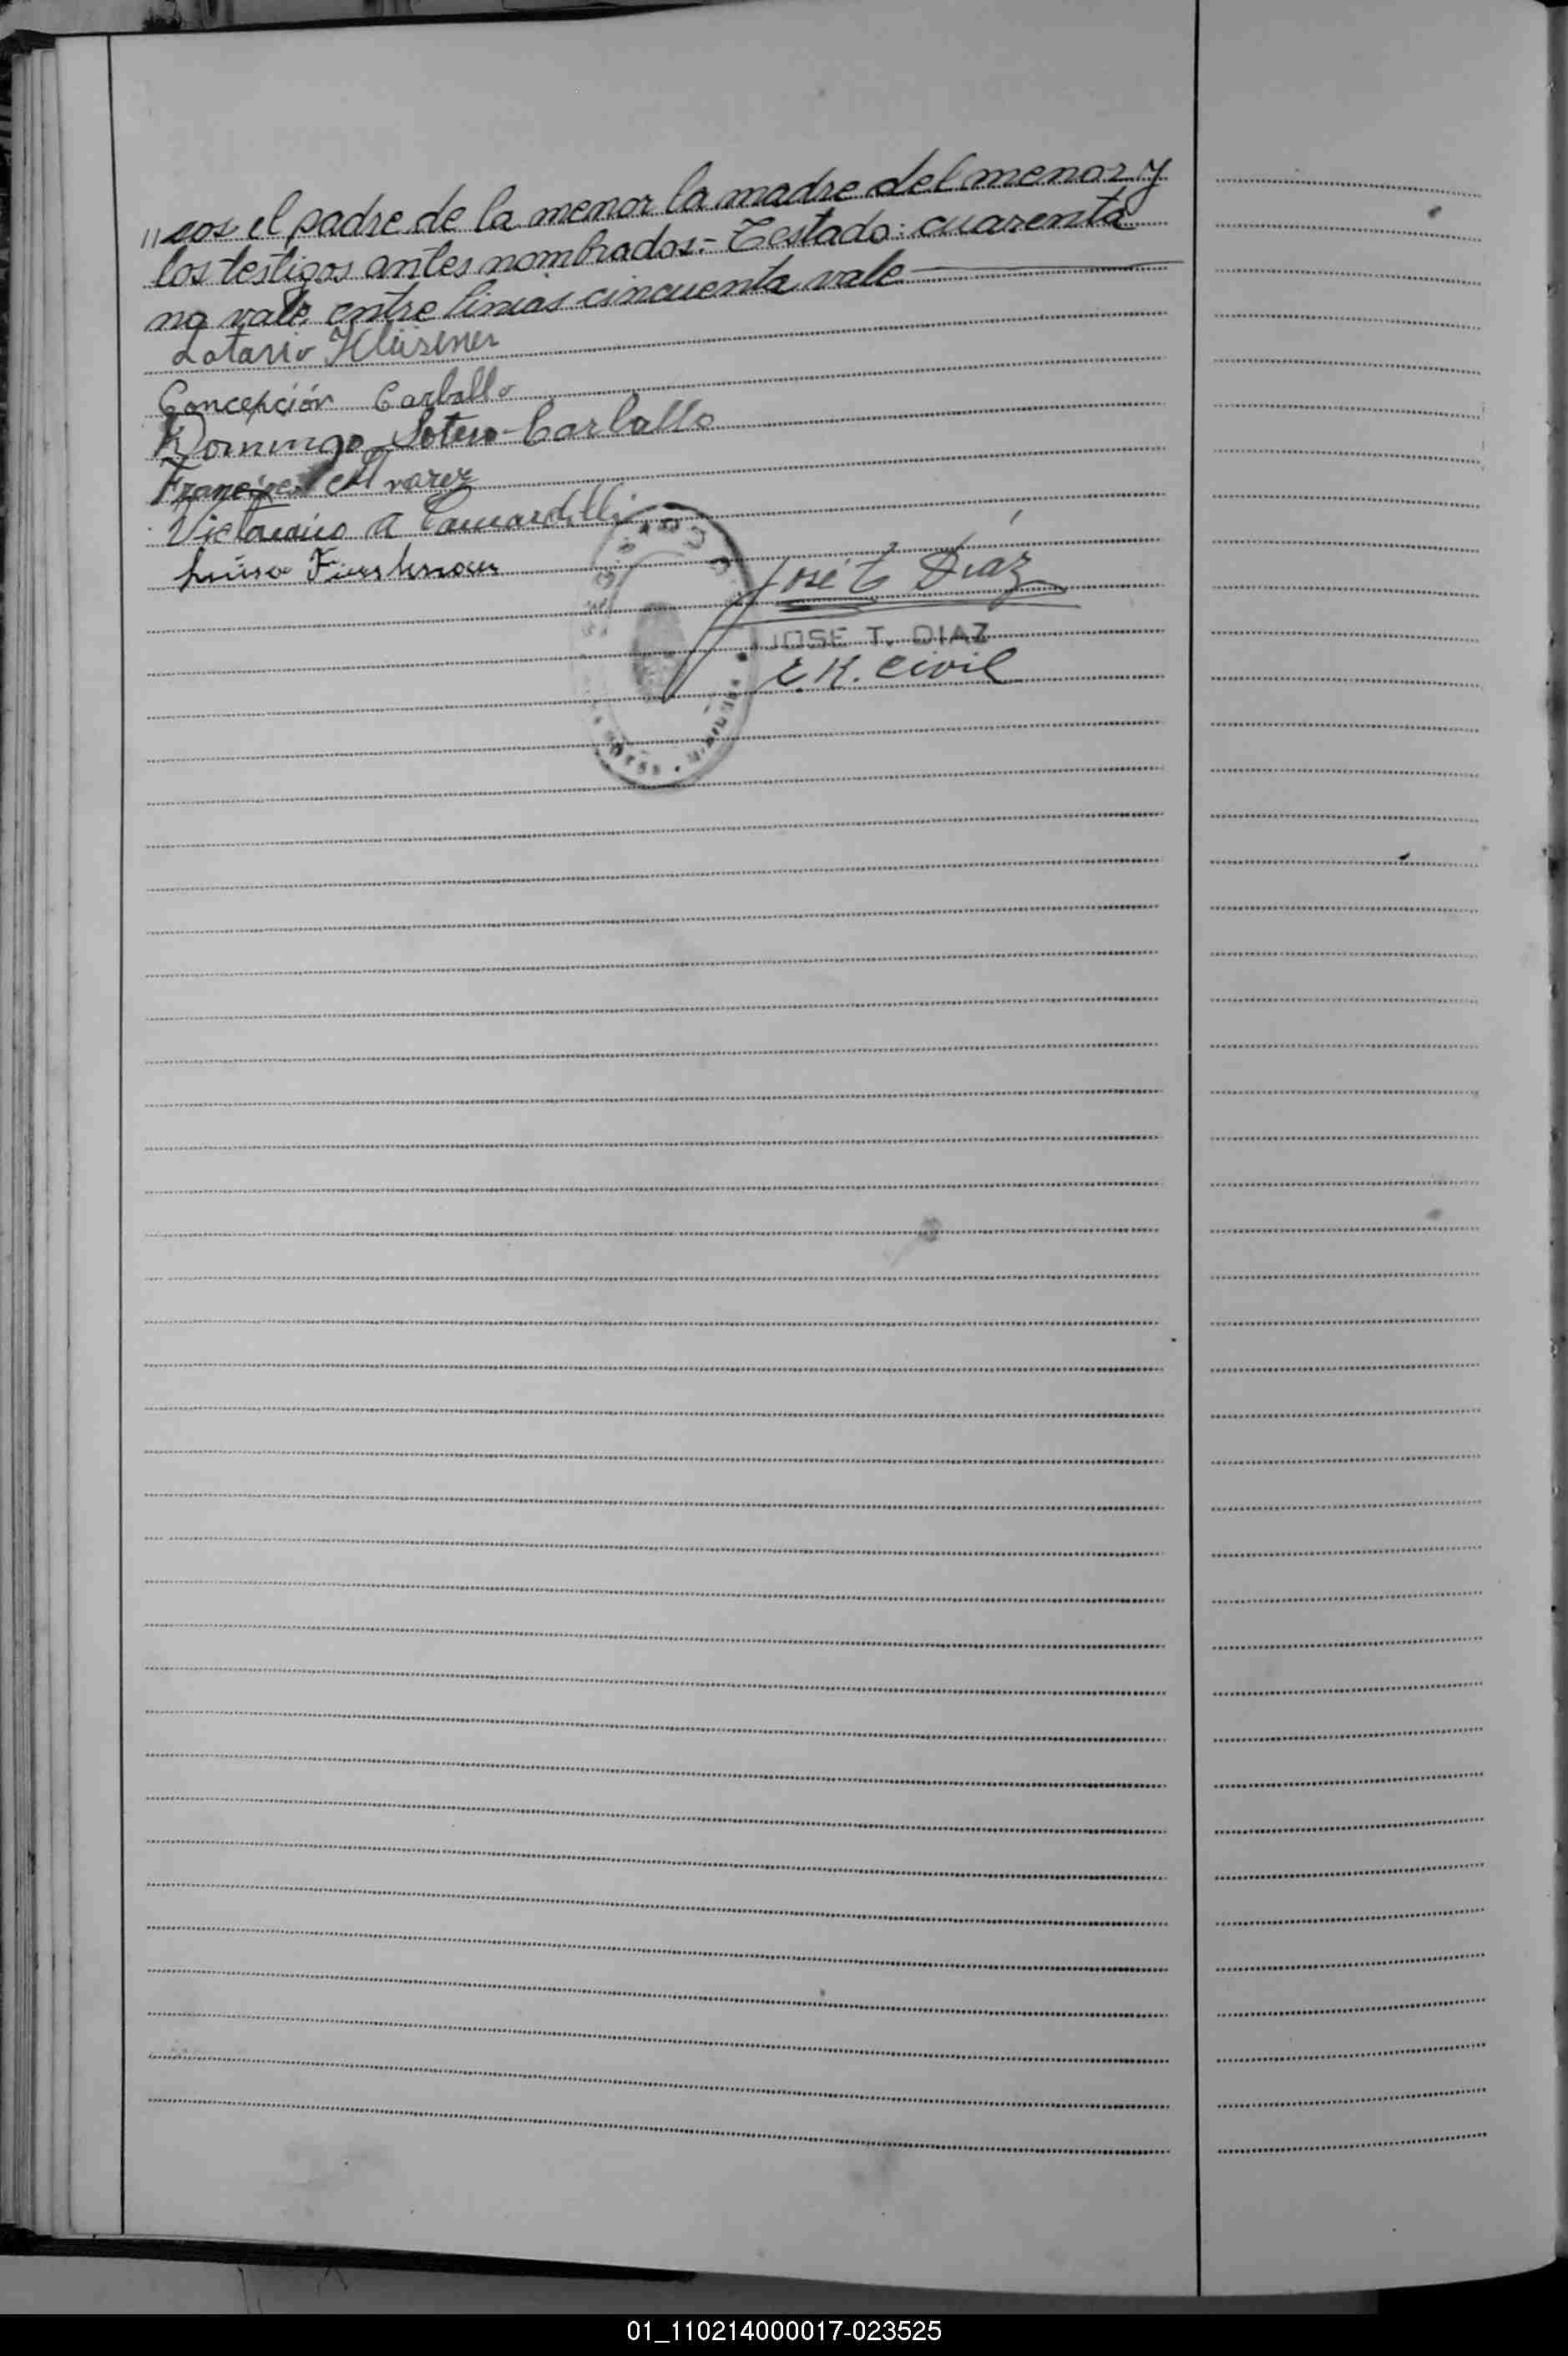 "sos el padre de la menor la madre del menor y
los testigos antes nombrados.- Testado: cuarenta
no vale, entre linias cincuenta vale
Lotario Hüsener
Concepción Carballo
Domingo Sotero Carballo
Francisco Alvarez
A
Luisa
José T Diaz
JOSE T. DIAZ
E.R. Civil
01_110214000017-023525